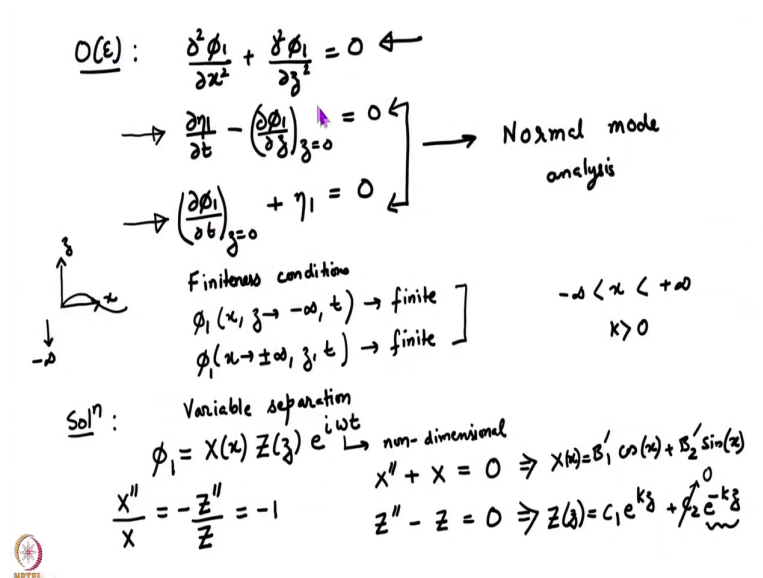 O(ε): ∂²φ₁/∂x² + ∂²φ₁/∂z² = 0 ←
→ ∂η₁/∂t − (∂φ₁/∂z)_{z=0} = 0
→ Normal mode analysis
→ (∂φ₁/∂t)_{z=0} + η₁ = 0
z
x
-∞
Finiteness conditions
φ₁(x, z→ -∞, t) → finite
φ₁(x→ ±∞, z, t) → finite
-∞ < x < +∞
k>0
Solⁿ: Variable separation
φ₁ = X(x) Z(z) e^{iωt}
↳ non-dimensional
X''/X = -Z''/Z = -1
X'' + X = 0 ⇒ X(x) = B₁' cos(x) + B₂' sin(x)
Z'' - Z = 0 ⇒ Z(z) = C₁ e^{kz} + C₂ e^{-kz}
0
NPTEL